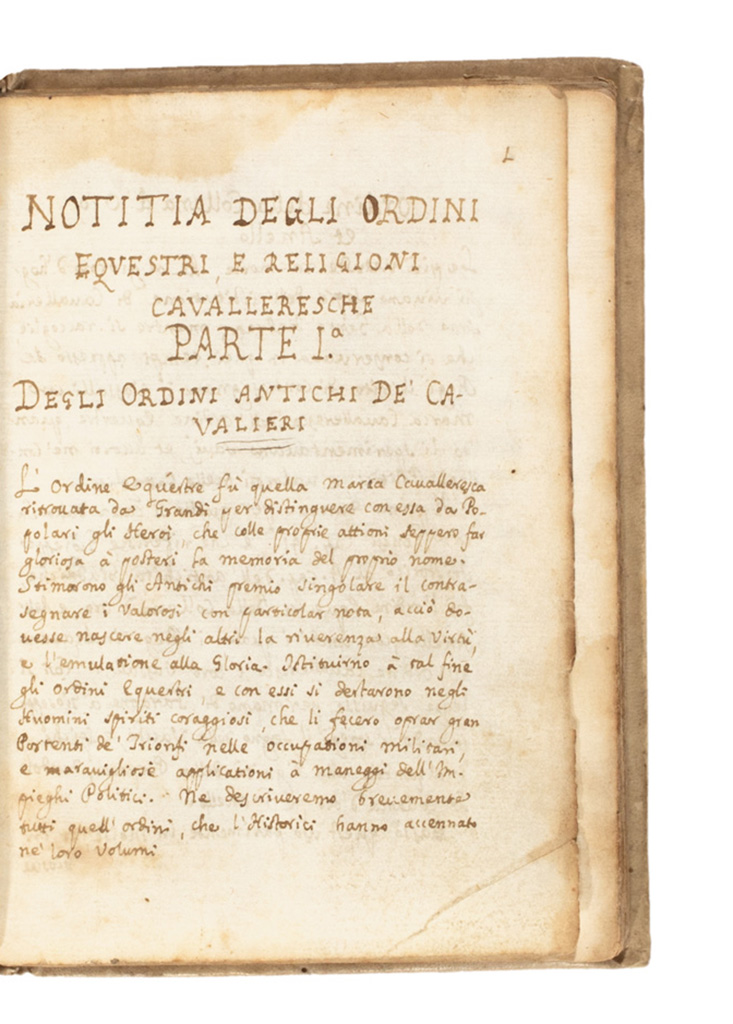 1
NOTITIA DEGLI ORDINI
EQVESTRI, E RELIGIONI
CAVALLERESCHE
PARTE I.ª
DEGLI ORDINI ANTICHI DE' CA-
VALIERI
L' Ordine Equestre fù quella marca Cavalleresca
ritrouata da Grandi per distinguere con essa da Po-
polari gli Heroi, che colle proprie attioni seppero far
gloriosa à posteri la memoria del proprio nome.
Stimorono gli Antichi premio singolare il contra-
segnare i Valorosi con particolar nota, acciò do-
uesse nascere negli altri la riuerenza alla Virtù,
e l'emulatione alla Gloria. Istituirno à tal fine
gli ordini Equestri, e con essi si destarono negli
Huomini spiriti coraggiosi, che li fecero oprar gran
Portenti de' Trionfi nelle occupationi militari,
e marauigliose applicationi à maneggi dell' Im-
pieghi Politici. Ne descriueremo breuemente
tutti quell' ordini, che l'Historici hanno accennato
ne' loro Volumi